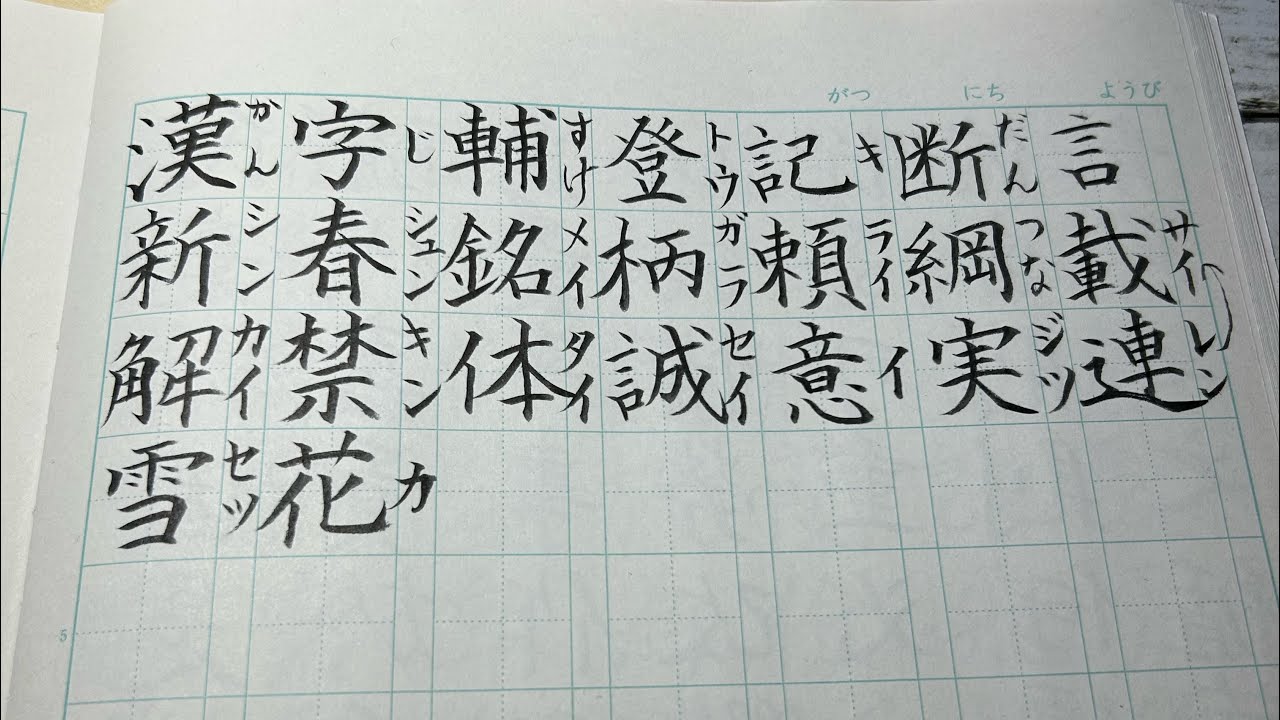 がつ にち ようび
漢かん字じ輔すけ登トウ記キ断だん言
新シン春シュン銘メイ柄ガラ頼ライ綱つな載サイ
解カイ禁キン体タイ誠セイ意イ実ジツ連レン
雪セツ花カ
5